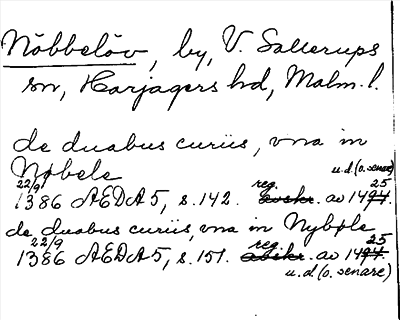 Nöbbelöv, by, V. Sallerups
sn, Harjagers hd, Malm. l.
de duabus curiis, vna in
Nøbele u.d. (o. senare)
22/9 1386 ÆDA 5, s. 142. reg. avskr. av 1494. 25
de duabus curiis, vna in Nybøle
22/9 1386 ÆDA 5, s. 151. reg. abskr. av 1494. 25
u.d. (o. senare)